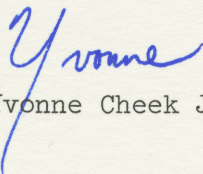 Yvonne
Yvonne Cheek J